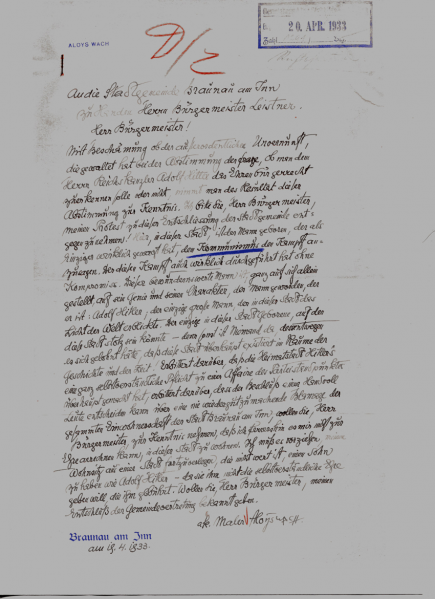 ALOYS WACH
D/2
20. APR. 1933
Zahl
An die Stadtgemeinde Braunau am Inn
Zu Handen Herrn Bürgermeister Leistner.
Herr Bürgermeister!
Mit Beschämung ob der außerordentlichen Unvernunft,
die gewaltet hat bei der Abstimmung der Frage, ob man dem
Herrn Reichskanzler Adolf Hitler das Ehrenbürgerrecht
zuerkennen solle oder nicht nimmt man das Resultat dieser
Abstimmung zur Kenntnis. Ich bitte Sie, Herr Bürgermeister,
meinen Protest zu dieser Entschließung der Stadtgemeinde ent-
gegen zu nehmen! Hier, in dieser Stadt, ist der Mann geboren, der als
Einziger wirklich gewagt hat, den Kommunismus den Kampf an-
zusagen. Der diesen Kampf auch wirklich durchgeführt hat ohne
Kompromiss. Dieser bewundernswerte Mann ist ganz auf sich allein
gestellt auf sein Genie und seinen Charakter, der Mann geworden, der
er ist: Adolf Hitler, der einzige große Mann der in dieser Stadt das
Licht der Welt erblickte. Der einzige in dieser Stadt Geborene, auf den
diese Stadt stolz sein könnte – denn sonst ist Niemand da, dessentwegen
es sich gelohnt hätte, daß diese Stadt überhaupt existiert im Raume der
Geschichte und der Zeit. Erbittert darüber, daß die Heimatstadt Hitler's
eine ganz selbstverständliche Pflicht zu einer Affaire des Parteistandpunktes
überhaupt gemacht hat, erbittert darüber, daß der Beschluß einer Handvoll
Leute entscheiden kann über eine nie wiedergutzumachende Blamage der
gesamten Einwohnerschaft der Stadt Braunau am Inn, wollen Sie, Herr
Bürgermeister, zur Kenntnis nehmen, daß ich fernerhin es mir nicht zur
Ehre anrechnen kann, in dieser Stadt zu wohnen. Ich muß es vorziehen, meinen
Wohnsitz in eine Stadt zu verlegen, die nicht wert ist, einen Sohn
zu haben wie Adolf Hitler – da sie ihm nicht die selbstverständliche Ehre
geben will, die ihm gebührt. Wollen Sie, Herr Bürgermeister, meinen
Entschluß der Gemeindevertretung bekanntgeben.
Maler Aloys Wach
Braunau am Inn
am 19.4.1933.